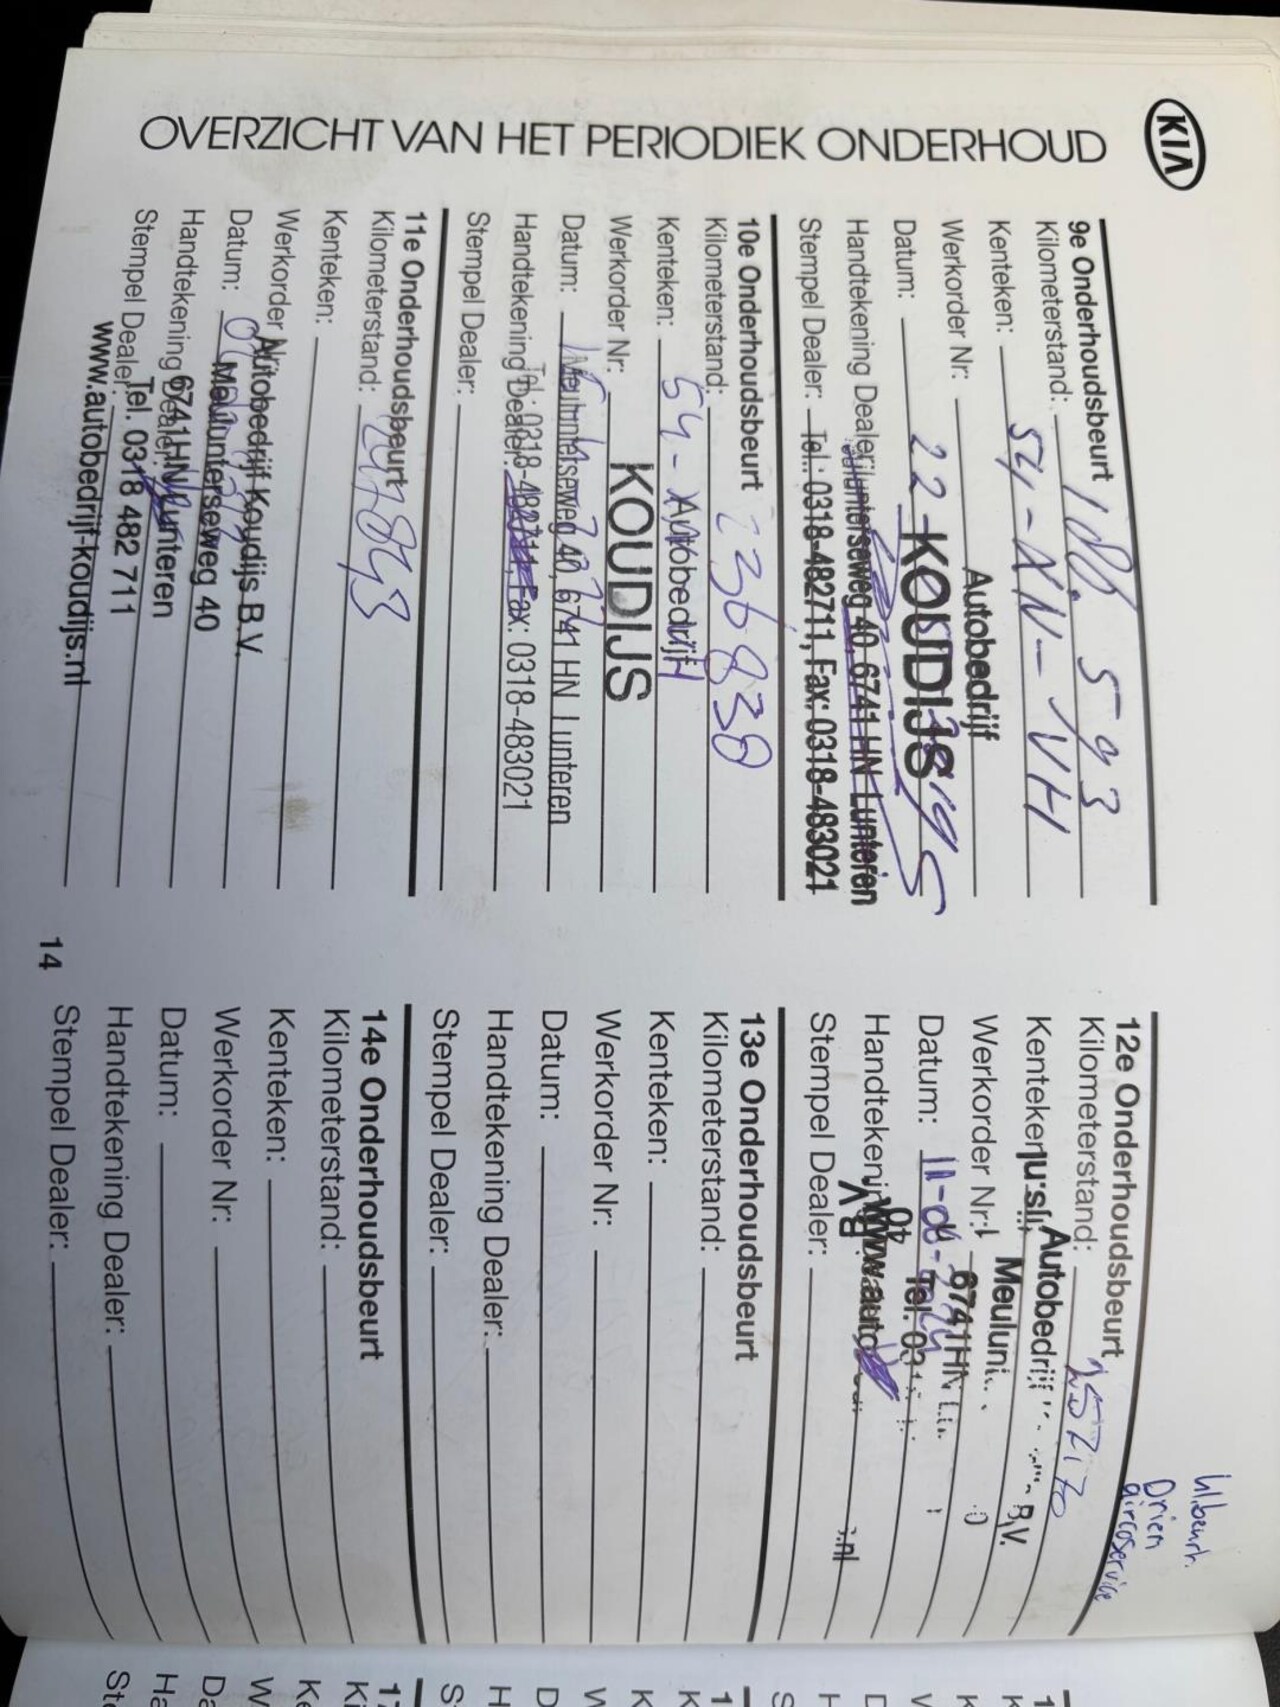 KIA
OVERZICHT VAN HET PERIODIEK ONDERHOUD
9e Onderhoudsbeurt
Kilometerstand: 593
Kenteken: 54-XN-VH
Werkorder Nr: Autobedrijf
Datum: 22 KOUDIJS
Handtekening Dealer: 40, 6741 HN Lunteren
Stempel Dealer: Tel.: 0318-482711, Fax: 0318-483021
10e Onderhoudsbeurt
Kilometerstand: 236830
Kenteken: 54- Autobedrijf
Werkorder Nr: KOUDIJS
Datum: Meulunterseweg 40, 6741 HN Lunteren
Handtekening Dealer: Tel.: 0318-482711, Fax: 0318-483021
Stempel Dealer:
11e Onderhoudsbeurt
Kilometerstand: 247843
Kenteken:
Werkorder Nr: Autobedrijf Koudijs B.V.
Datum: Meulunterseweg 40
Handtekening Dealer: 6741HN Lunteren
Stempel Dealer: Tel. 0318 482 711
www.autobedrijf-koudijs.nl
14
12e Onderhoudsbeurt
Kilometerstand: 252170
Kenteken: Autobedrijf B.V.
Werkorder Nr: Meulun
Datum: 11-06- 6741HN
Handtekening Tel. 031
Stempel Dealer: www.auto .nl
Drien
aircoservice
13e Onderhoudsbeurt
Kilometerstand:
Kenteken:
Werkorder Nr:
Datum:
Handtekening Dealer:
Stempel Dealer:
14e Onderhoudsbeurt
Kilometerstand:
Kenteken:
Werkorder Nr:
Datum:
Handtekening Dealer:
Stempel Dealer: